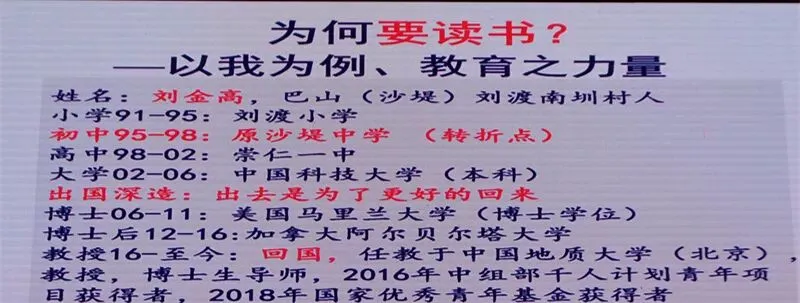 为何要读书?
—以我为例、教育之力量
姓名: 刘金高, 巴山 (沙堤) 刘渡南圳村人
小学91-95: 刘渡小学
初中95-98: 原沙堤中学 (转折点)
高中98-02: 崇仁一中
大学02-06: 中国科技大学 (本科)
出国深造: 出去是为了更好的回来
博士06-11: 美国马里兰大学 (博士学位)
博士后12-16:加拿大阿尔贝尔塔大学
教授16-至今: 回国, 任教于中国地质大学 (北京),
教授, 博士生导师, 2016年中组部千人计划青年项
目获得者, 2018年国家优秀青年基金获得者